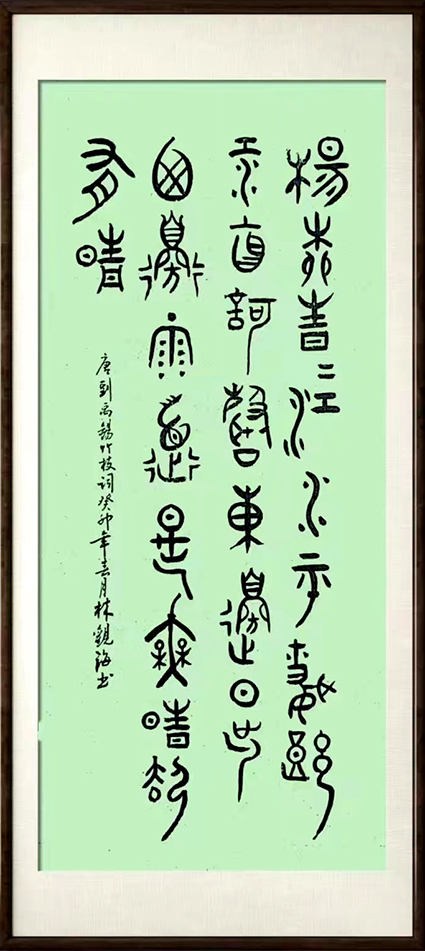 楊柳青=江水平聞郎
江上唱歌聲東邊日出
西邊雨道是無晴卻
有晴
唐劉禹錫竹枝詞癸卯年月林觀海书